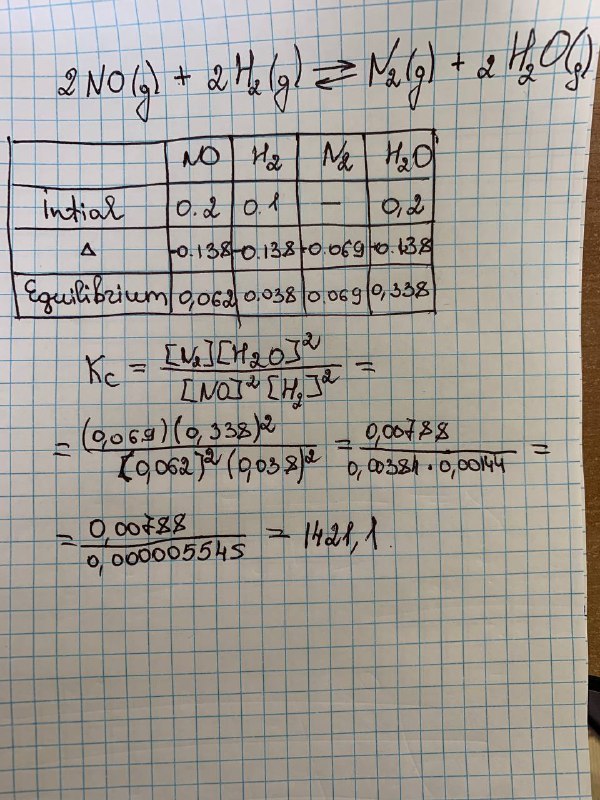 2NO(g) + 2H₂(g) ⇌ N₂(g) + 2H₂O(g)
NO H₂ N₂ H₂O
Intial 0.2 0.1 — 0,2
Δ -0.138 -0.138 +0.069 +0.138
Equilibrium 0,062 0.038 0.069 0,338
Kc = [N₂][H₂O]² / [NO]² [H₂]² =
= (0,069)(0,338)² / [0,062]² (0,038)² = 0,00788 / 0,00384 · 0,00144 =
= 0,00788 / 0,000005545 = 1421,1.